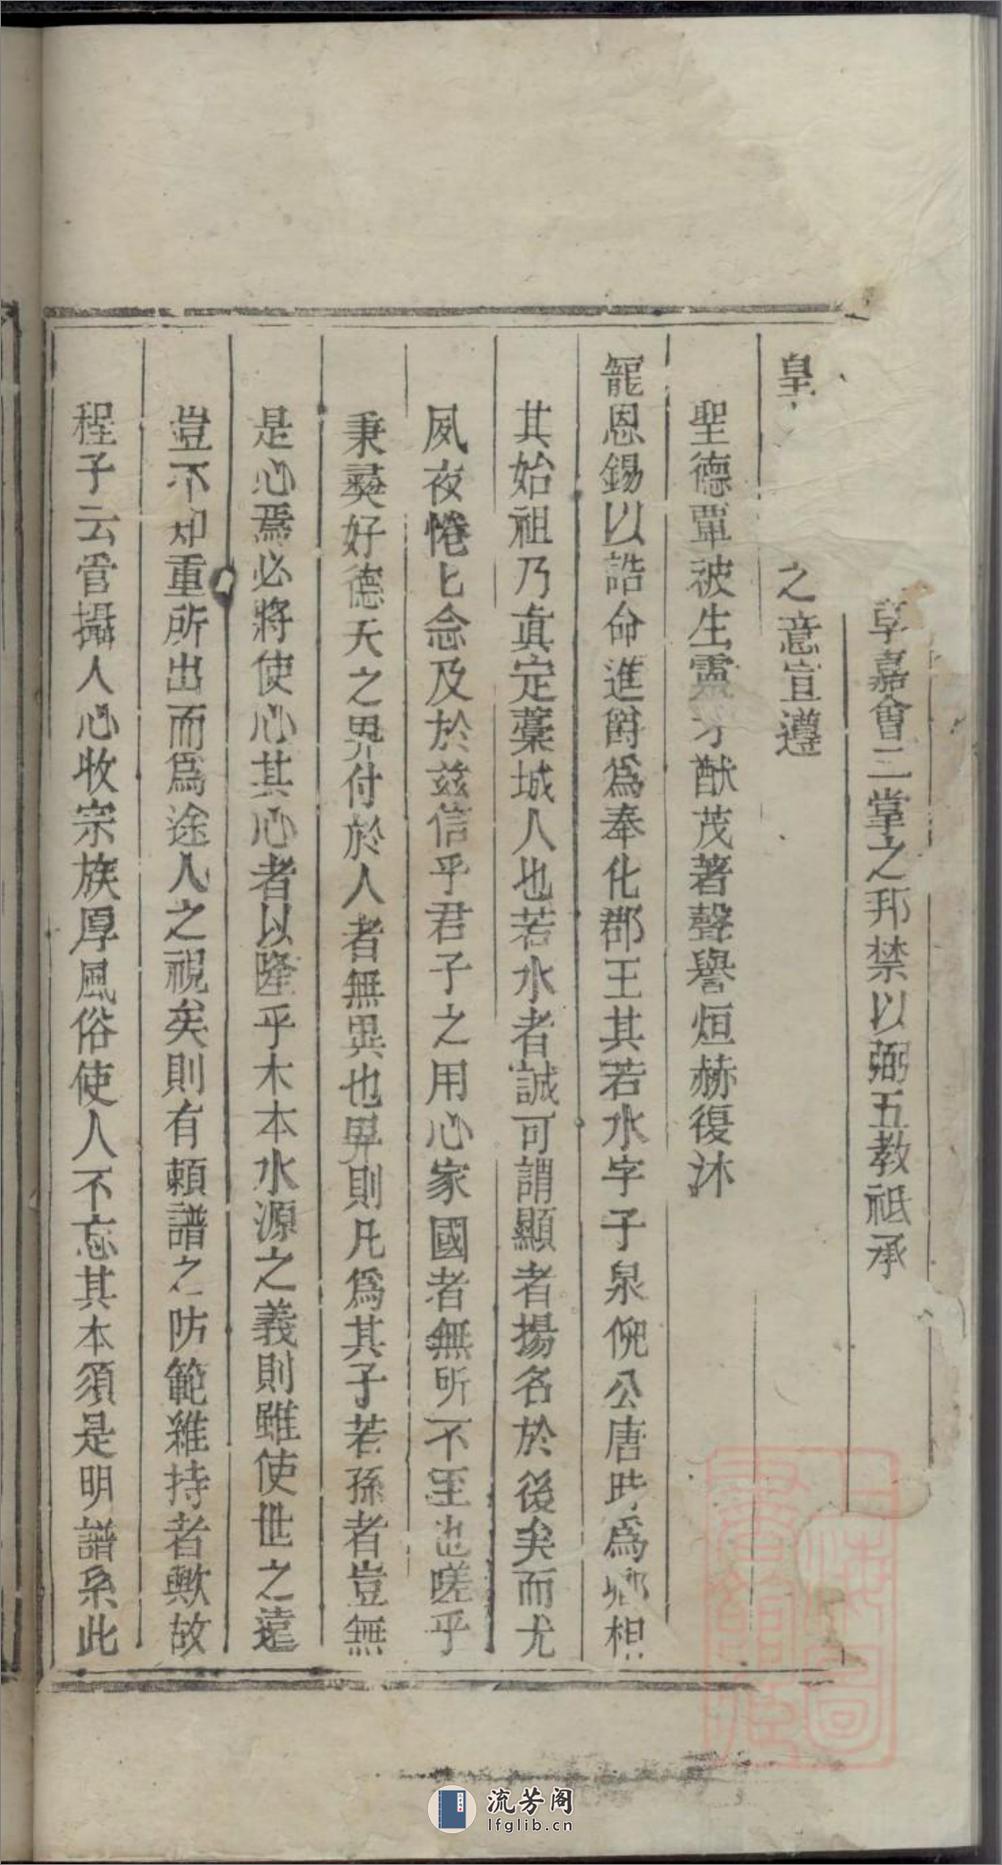 享嘉會二堂之邦禁以弼五教祗承
皇 之意宣遵
聖德覃被生靈才猷茂著聲譽烜赫復沐
寵恩錫以誥命進爵爲奉化郡王其若水字子泉倪公唐時爲鄉相
其始祖乃眞定藁城人也若水者誠可謂顯者揚名於後矣而尤
夙夜惓匕念及於茲信乎君子之用心家國者無所不至也嗟乎
秉彝好德天之畀付於人者無異也畀則凡爲其子若孫者豈無
是心焉必將使心其心者以隆乎木本水源之義則雖使世之遠
豈不知重所出而爲途人之視矣則有賴譜之防範維持者歟故
程子云管攝人心收宗族厚風俗使人不忘其本須是明譜系此
上海圖書館藏
流芳阁
lfglib.cn